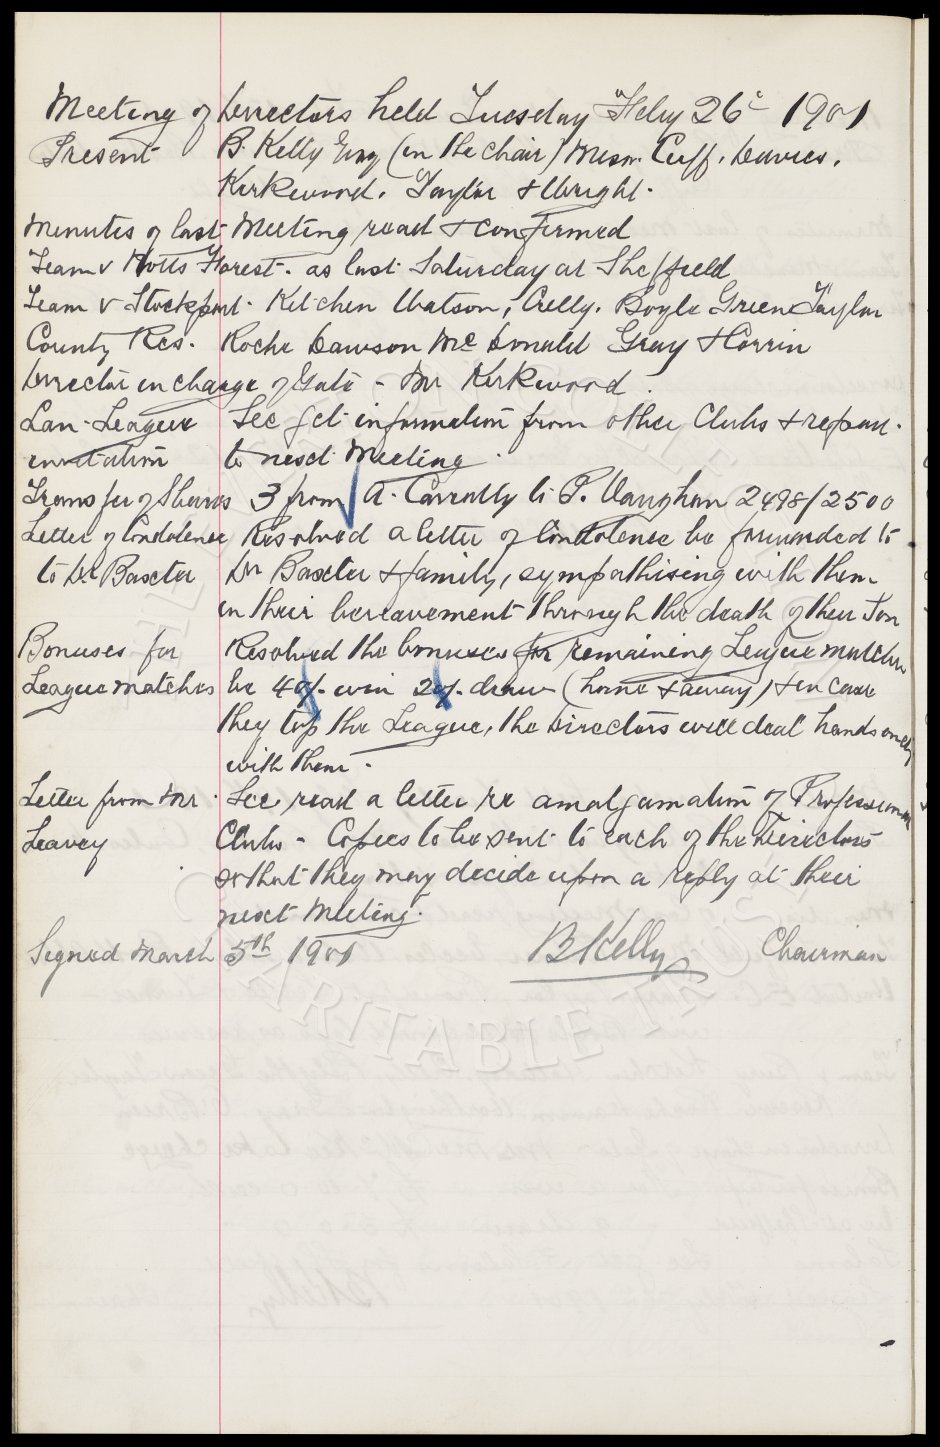 Meeting of Directors held Tuesday Feby 26th 1901
Present B. Kelly Esq (in the chair) Messrs. Cuff, Davies,
Kirkwood, Taylor & Wright.
Minutes of last Meeting read & confirmed
Team v Notts Forest. as last Saturday at Sheffield
Team v Stockport. Kitchen Watson, Crelly. Boyle Green Taylor
County Res. Roche Dawson McDonald Gray & Corrin
Director in charge of Gate - Mr Kirkwood.
Lan. League Sec get information from other Clubs & report.
invitation to next Meeting.
Transfer of Shares 3 from A. Carrally to P. Vaughan 2498/2500
Letter of Condolence Resolved a letter of Condolence be forwarded to
to Dr Baxter Dr Baxter & family, sympathising with them
in their bereavement through the death of their Son
Bonuses for Resolved the bonuses for remaining League matches
League matches be 40/- win 20/- draw (home & away) & in case
they top the League, the Directors will deal handsomely
with them.
Letter from Mr Sec read a letter re amalgamation of Professional
Leavey Clubs - Copies to be sent to each of the Directors
so that they may decide upon a reply at their
next Meeting.
Signed March 5th 1901 B Kelly Chairman
CHARITABLE TRUST